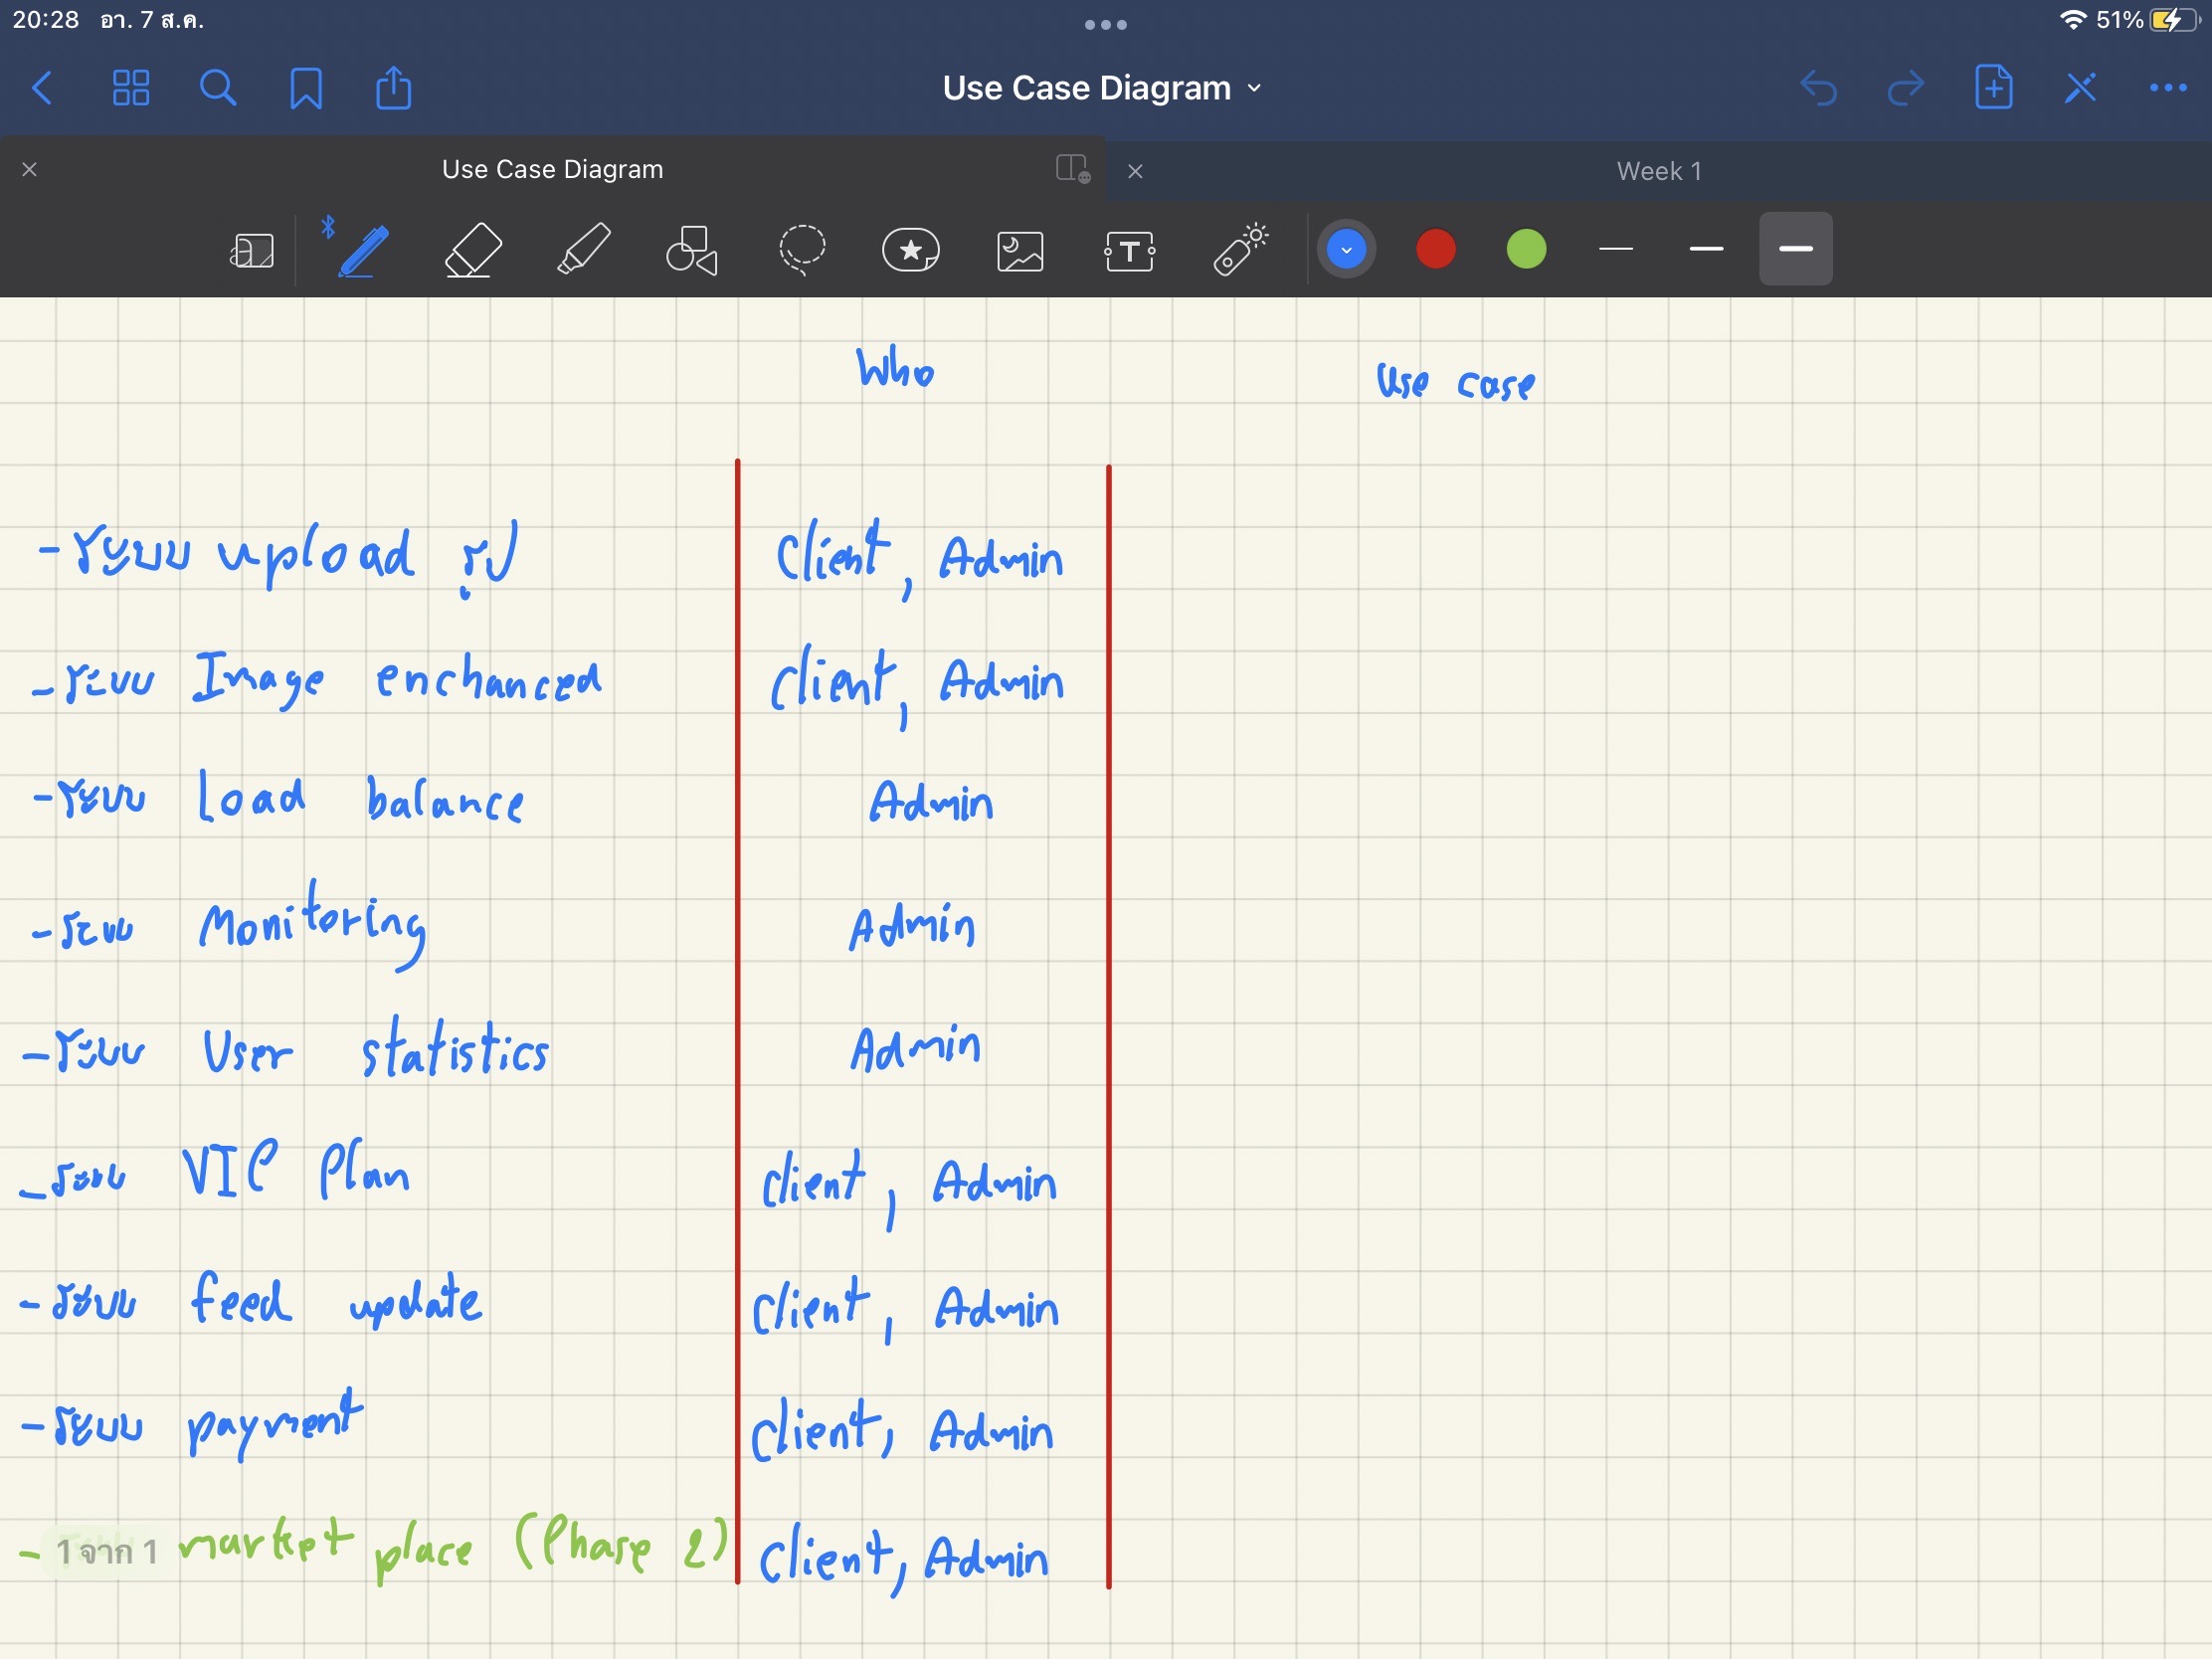 20:28 อา. 7 ส.ค. 51%
Use Case Diagram
Use Case Diagram Week 1
Who Use case
-ระบบ upload รูป Client, Admin
-ระบบ Image enchanced Client, Admin
-ระบบ Load balance Admin
-ระบบ Monitoring Admin
-ระบบ User statistics Admin
-ระบบ VIP Plan Client, Admin
-ระบบ feed update Client, Admin
-ระบบ payment Client, Admin
- 1 จาก 1 market place (Phase 2) Client, Admin